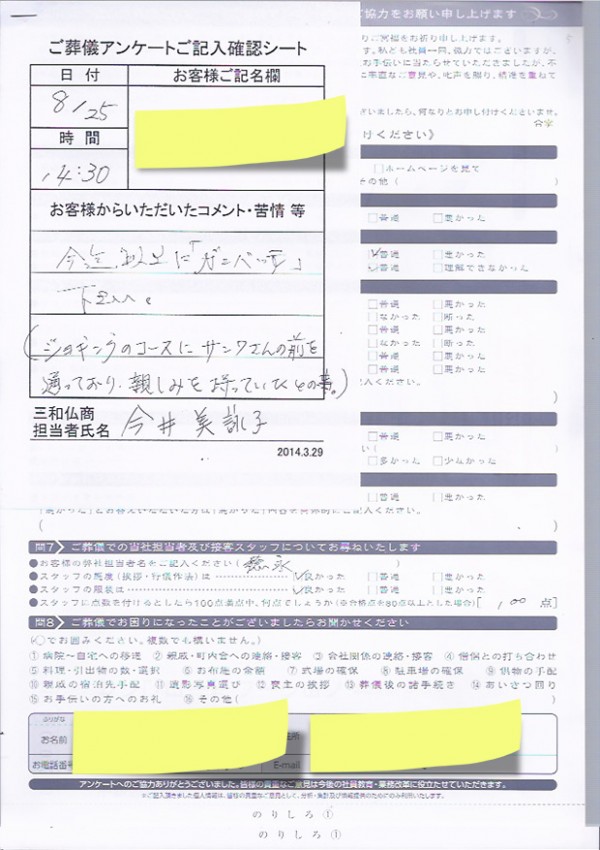 ご協力をお願い申し上げます
ご葬儀アンケートご記入確認シート
日付
お客様ご記名欄
8/25
時間
14:30
お客様からいただいたコメント・苦情 等
今迄以上に「ガンバッテ」
下さい。
(ジョギングのコースにサンワさんの前を
通っており、親しみを持っていたとの事。)
三和仏商
担当者氏名 今井美誠子
2014.3.29
けください》
□ホームページを見て
その他(
□普通 □悪かった
☑普通 □悪かった
☑普通 □理解できなかった
□普通 □悪かった
□なかった □断った
□普通 □悪かった
□なかった □断った
□普通 □悪かった
□普通 □悪かった
□普通 □悪かった
□多かった □少なかった
□普通 □悪かった
問7 ご葬儀での当社担当者及び接客スタッフについてお尋ねいたします
●お客様の弊社担当者名をご記入ください( 徳永 )
●スタッフの態度(挨拶・行儀作法)は ☑良かった □普通 □悪かった
●スタッフの服装は ☑良かった □普通 □悪かった
●スタッフに点数を付けるとしたら100点満点中、何点でしょうか(※合格点を80点以上とした場合)[ 100 点]
問8 ご葬儀でお困りになったことがございましたらお聞かせください
(○でお囲みください。複数でも構いません。)
①病院~自宅への移送 ②親戚・町内会への連絡・接客 ③会社関係の連絡・接客 ④僧侶との打ち合わせ
⑤料理・引出物の数・選択 ⑥お布施の金額 ⑦式場の確保 ⑧駐車場の確保 ⑨供物の手配
⑩親戚の宿泊先手配 ⑪遺影写真選び ⑫喪主の挨拶 ⑬葬儀後の諸手続き ⑭あいさつ回り
⑮お手伝いの方へのお礼 ⑯その他(
ふりがな
お名前
お電話番号
E-mail
アンケートへのご協力ありがとうございました。皆様の貴重なご意見は今後の社員教育・業務改革に役立たせていただきます。
※ご記入頂きました個人情報は、皆様の貴重なご意見として、分析・集計及び情報提供のためにのみ利用いたします。
のりしろ①
のりしろ①